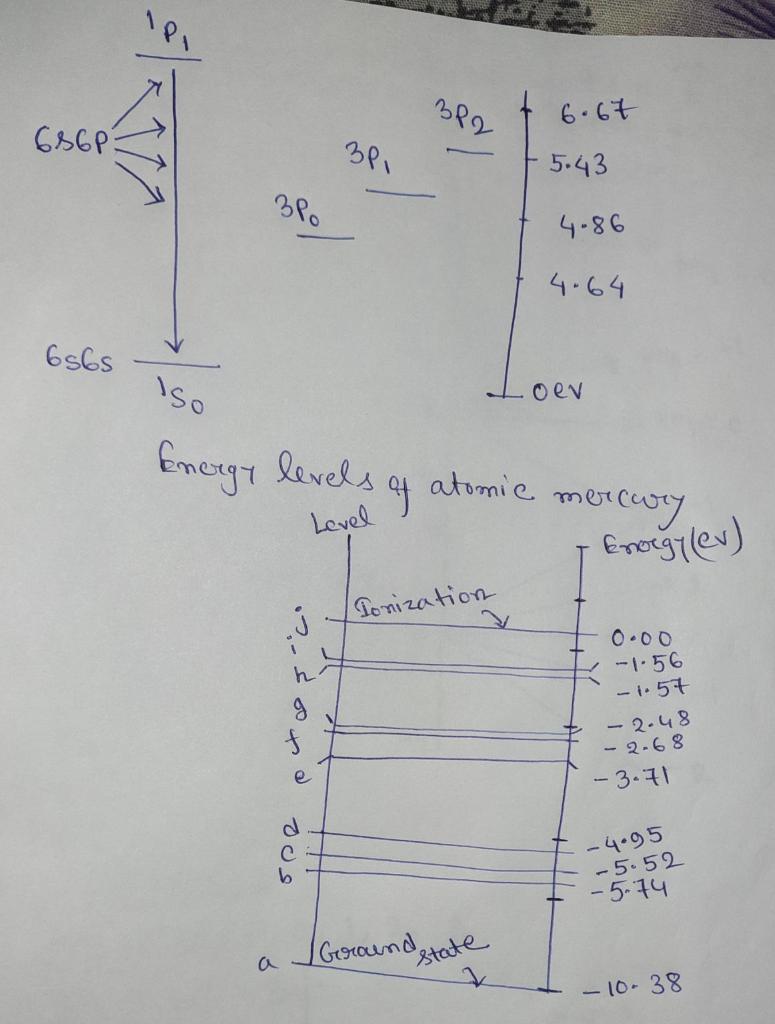 ¹P₁
3P₂ 6.67
6s6p 3P₁ 5.43
3P₀ 4.86
4.64
6s6s
¹S₀ 0ev
Energy levels of atomic mercury
Level Energy(ev)
j Ionization 0.00
i -1.56
h -1.57
g -2.48
f -2.68
e -3.71
d -4.95
c -5.52
b -5.74
a Ground state -10.38